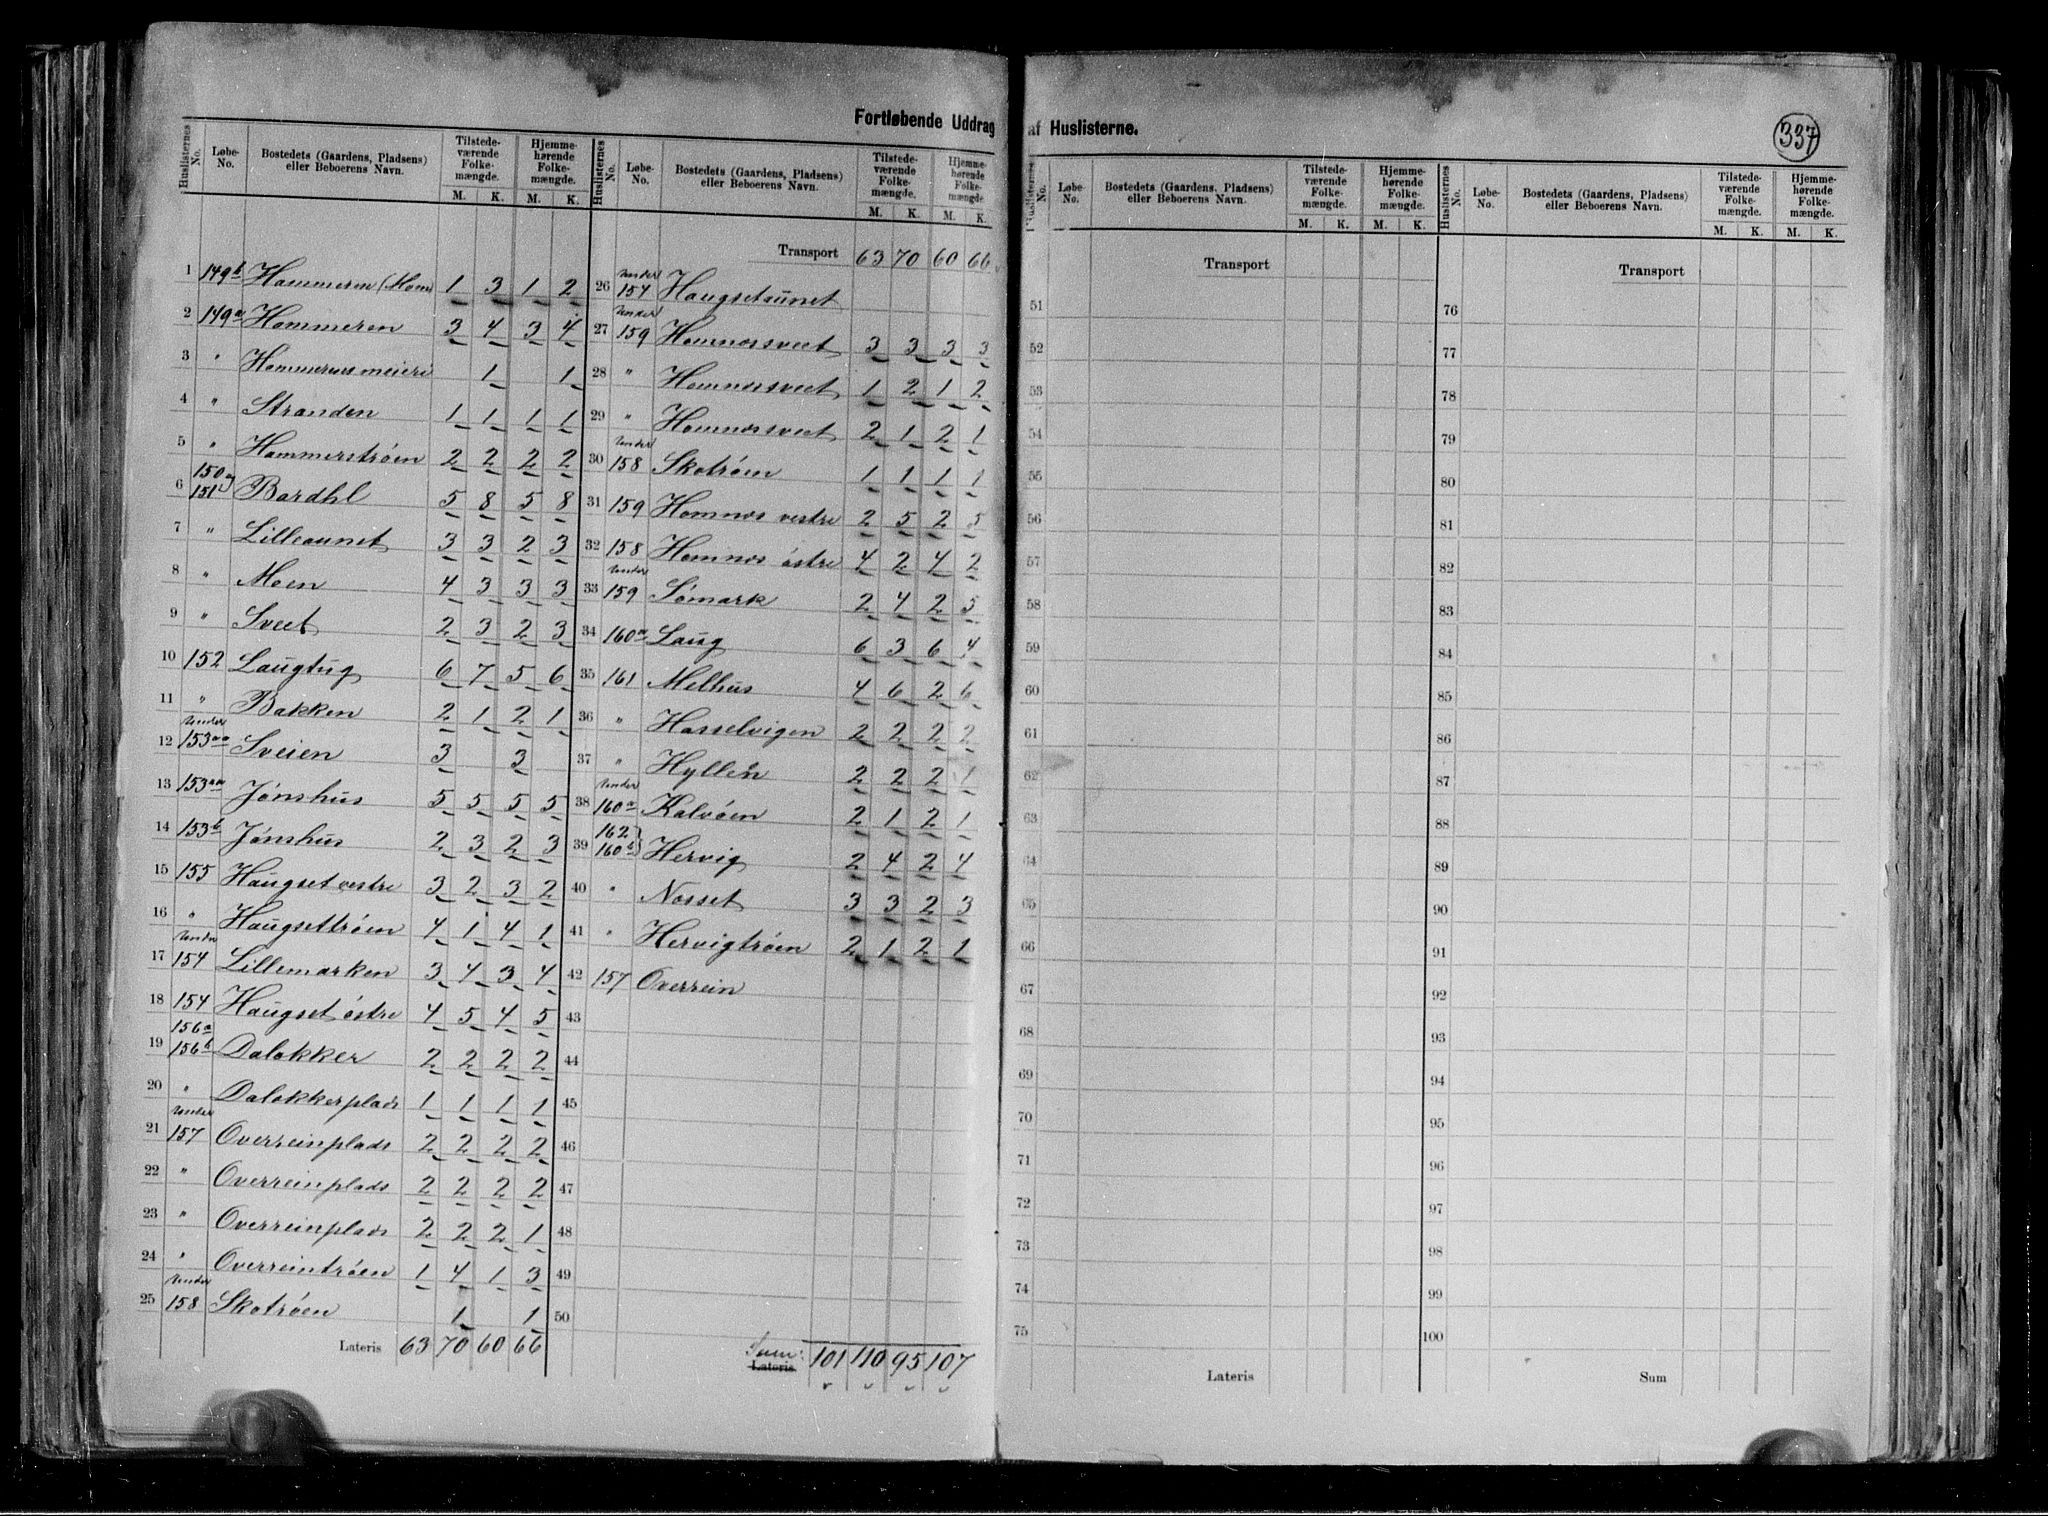 Fortløbende Uddrag af Huslisterne.
337
Huslisternes No. | Løbe-No. | Bostedets (Gaardens, Pladsens) eller Beboerens Navn. | Tilstedeværende Folkemængde. M. K. | Hjemmehørende Folkemængde. M. K.
1 149b Hammeren (Hom 1 3 1 2
2 149a Hammeren 3 4 3 4
3 " Hammerens meieri 1 1
4 " Stranden 1 1 1 1
5 " Hammerstrøen 2 2 2 2
6 150 og 151 Bardhl 5 8 5 8
7 " Lilleaunet 3 3 2 3
8 " Moen 4 3 3 3
9 " Sveet 2 3 2 3
10 152 Laugtug 6 7 5 6
11 " Bakken 2 1 2 1
12 under 153aa Sveien 3 3
13 153aa Jønshus 5 5 5 5
14 153b Jønshus 2 3 2 3
15 155 Haugset vestre 3 2 3 2
16 " Haugsettrøen 4 1 4 1
17 under 154 Lillemarken 3 4 3 4
18 154 Haugset østre 4 5 4 5
19 156a 156b Dalakker 2 2 2 2
20 " Dalakkerplads 1 1 1 1
21 under 157 Overreinplads 2 2 2 2
22 " Overreinplads 2 2 2 2
23 " Overreinplads 2 2 2 1
24 " Overreintrøen 1 4 1 3
25 under 158 Skotrøen 1 1
Lateris 63 70 60 66
Huslisternes No. | Løbe-No. | Bostedets (Gaardens, Pladsens) eller Beboerens Navn. | Tilstedeværende Folkemængde. M. K. | Hjemmehørende Folkemængde M. K.
Transport 63 70 60 66
26 under 154 Haugsetaunet
27 under 159 Hamnossveet 3 3 3 3
28 " Hamnossveet 1 2 1 2
29 " Hamnossveet 2 1 2 1
30 under 158 Skotrøen 1 1 1 1
31 159 Hamnos vestre 2 5 2 5
32 158 Hamnos østre 4 2 4 2
33 under 159 Sømark 2 4 2 5
34 160a Laug 6 3 6 4
35 161 Melhus 4 6 2 6
36 " Hasselvigen 2 2 2 2
37 " Hyllen 2 2 2 1
38 under 160a Kalvøen 2 1 2 1
39 162 160b Hervig 2 4 2 4
40 " Nosset 3 3 2 3
41 " Hervigtrøen 2 1 2 1
42 157 Overrein
43
44
45
46
47
48
49
50
Sum: Lateris 101 110 95 107
Huslisternes No. | Løbe-No. | Bostedets (Gaardens, Pladsens) eller Beboerens Navn. | Tilstedeværende Folkemængde. M. K. | Hjemmehørende Folkemængde. M. K.
Transport
51
52
53
54
55
56
57
58
59
60
61
62
63
64
65
66
67
68
69
70
71
72
73
74
75
Lateris
Huslisternes No. | Løbe-No. | Bostedets (Gaardens, Pladsens) eller Beboerens Navn. | Tilstedeværende Folkemængde. M. K. | Hjemmehørende Folkemængde. M. K.
Transport
76
77
78
79
80
81
82
83
84
85
86
87
88
89
90
91
92
93
94
95
96
97
98
99
100
Sum